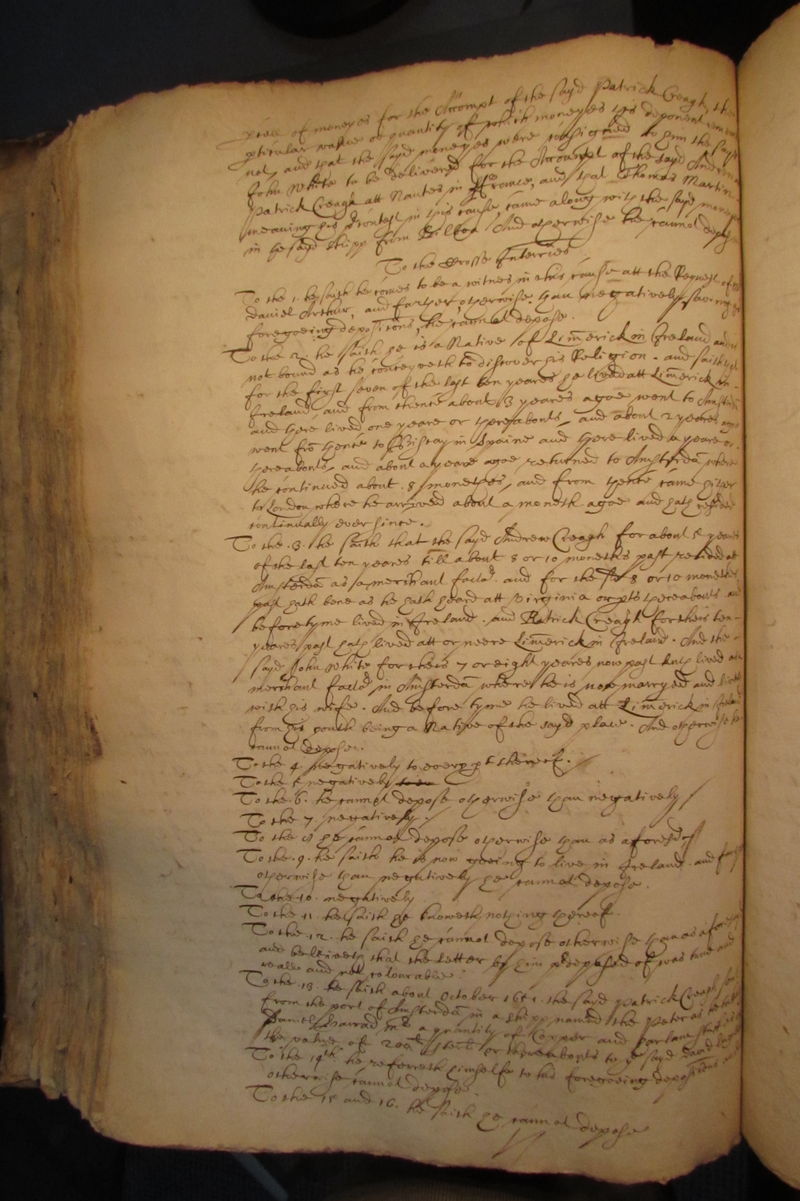 of moneyes for the Accompt of the sayd Patrick Creagh, the
perticular value or quantity of which moneyes this deponent
not, and that the sayd moneyes were consigned to him the sayd
John White to be delivered for the Accompt of the sayd Andrew
Patrick Creagh att Nantes in ffrance, and that Thomas Martin
meaning his Contest in this cause, came along with the sayd moneyes
in the sayd shipp from Bilboa And otherwise he cannot depose
To the Crosse Interries
To the 1. he saith he comes to be a witnes in this cause att the Request of
daniel Arthur, and farther otherwise than negatively, saving his
foregoeing depositions, he cannot depose.
To the 2. he saith he is a Native of Limerick in Ireland and is
not bound as he conceyveth to discover his Religion. and saith that
for the first seven of the last ten yeares he lived att Limerick in
Ireland, and from thence about 3 yeares agoe went to Amsterdam
and there lived one yeare or thereabouts, and about 2 yeares agoe
went fro thence to Biscay in Spaine and there lived a yeare or
thereabouts, and about a yeare agoe returned to Amsterdam where
he continued about 8 monethes, and from thence came hither
to London where he arryved about a moneth agoe and hath resided
continually ever since.
To the .3. he saith that the sayd Andrew Creagh for about 5 yeares
of the last ten yeares till about 8 or 10 moneths past resided at
Amsterdam as a merchant factor. and for the 8 or 10 monethes
past hath bene as he hath heard att Virginia or thereabouts and
before tyme lived in Ireland. and Patrick Creagh for theis ten
yeares past hath lived att or neere Limerick in Ireland. And the
sayd John White for theis 7 or eight yeares now past hath lived as a
merchant factor in Amsterdam where he is now marryed and lives
with his wife. And before tyme he lived att Limerick in Ireland
from his youth being a Native of the sayd place. And otherwise he
cannot depose.
To the 4 negatively to every pt thereof.
To the 5 negatively
To the .6. he cannot depose otherwise than negatively
To the 7 negatively.
To the 8 he cannot depose otherwise than as aforesd
To the .9. he saith he is now goeing to live in Ireland. and farther
otherwise than negatively he cannot depose.
To the 10. negatively
To the 11. he saith he knoweth nothing thereof.
To the 12. he saith he cannot depose otherwise than as aforesayd
and beleeveth that the Letter by him predeposed of was true and
reall and not colourable.
To the 13. he saith about October 1651. the sayd Patrick Creagh
from the port of Amsterdam in a shipp named the Peter
a quantity of Copper and
the value of or thereabouts to the sayd
To the 14th he referreth himselfe to his foregoeing depositions
otherwise cannot depose.
To the 15 and 16. he saith he cannot depose